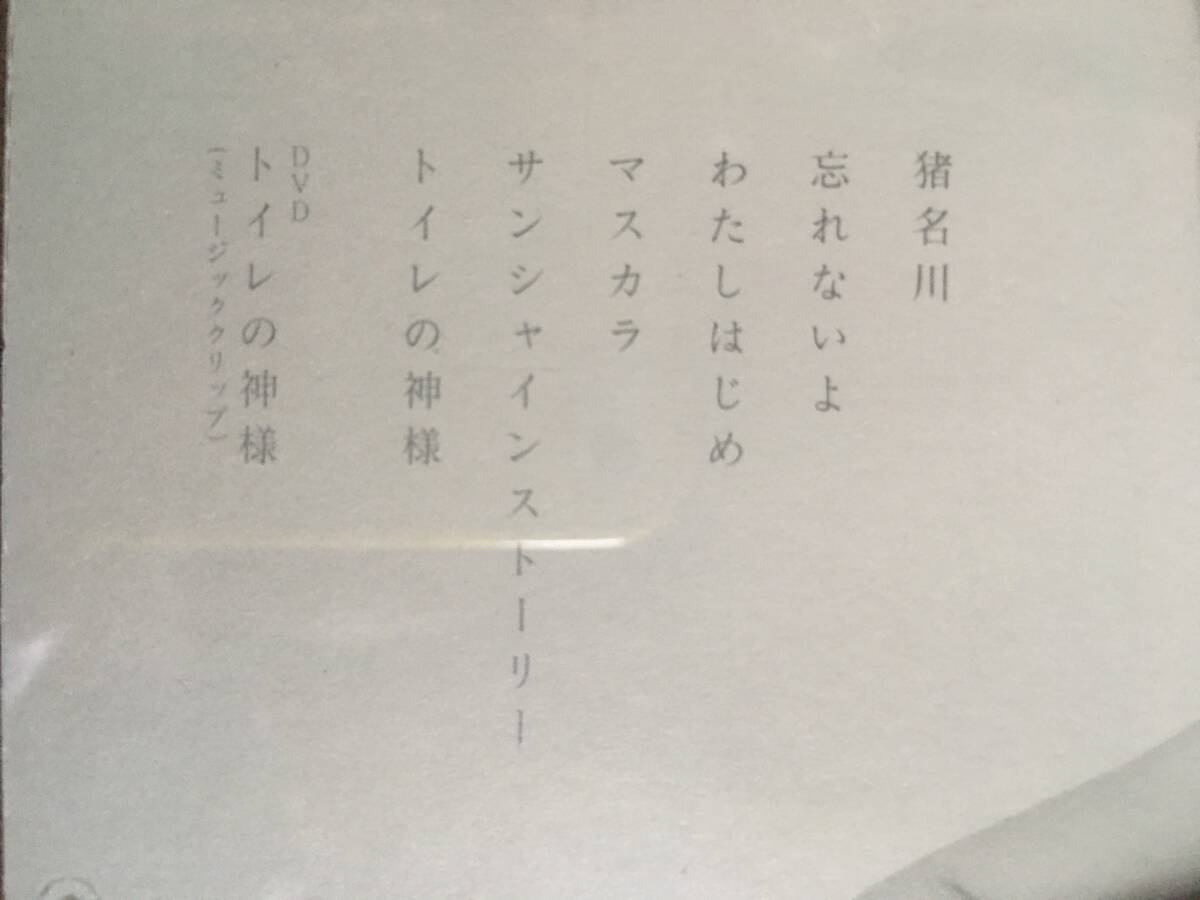 猪名川
忘れないよ
わたしはじめ
マスカラ
サンシャインストーリー
トイレの神様
DVD
トイレの神様
(ミュージッククリップ)